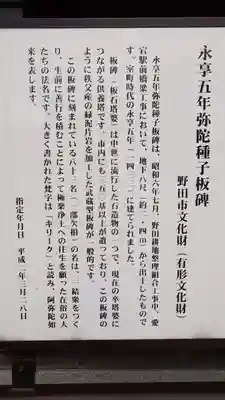 永享五年弥陀種子板碑
野田市文化財（有形文化財）
永享五年弥陀種子板碑は、昭和六年七月、野田耕地整理組合工事中、愛
宕駅前橋梁工事において、地下八尺（約二・四m）から出土したもので
す。室町時代の永享五年（一四三三）に建てられました。
板碑（板石塔婆）は中世に流行した石造物の一つで、現在の卒塔婆に
つながる供養塔です。市内にも一五〇基以上が遺っており、この板碑の
ように秩父産の緑泥片岩を加工した武蔵型板碑が一般的です。
この板碑に刻まれている八十三名（一部欠損）の名は、一結衆をつく
り、生前に善行を積むことによって極楽浄土への往生を願った在俗の人
たちの法名です。大きく書かれた梵字は「キリーク」と読み、阿弥陀如
来を表します。
指定年月日　平成二年三月二八日